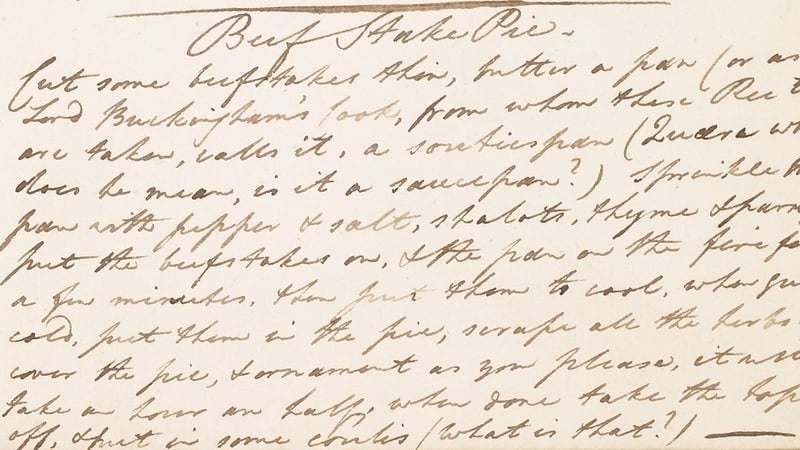 Beef Stake Pie.
Cut some beefstakes thin, butter a pan (or as
Lord Buckingham's cook, from whom these Rec
are taken, calls it, a soutiespan (Quæra wh
does he mean, is it a saucepan?) sprinkle
pan with pepper & salt, shalots, thyme & pars
put the beefstakes on, & the pan on the fire fo
a few minutes, then put them to cool, when qu
cold, put them in the pie, scrape all the herbs
cover the pie, & ornament as you please, it will
take an hour an half, when done take the top
off, & put in some coulis (what is that?)